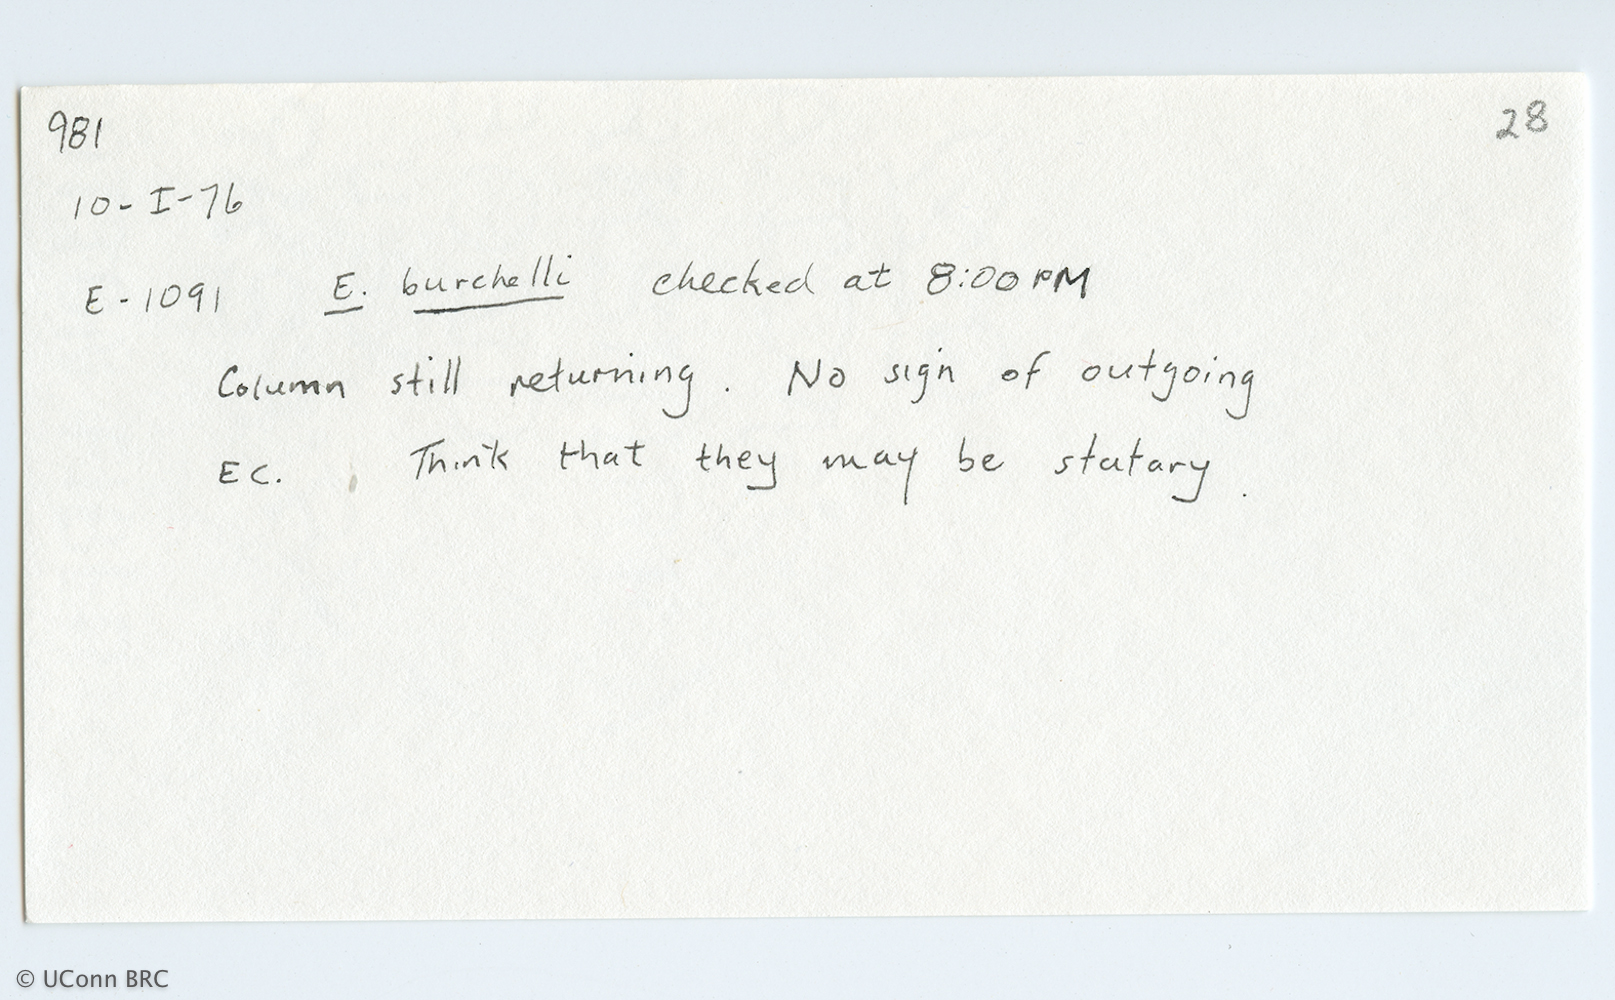 981
28
10-I-76
E-1091 E. burchelli checked at 8:00 PM
Column still returning. No sign of outgoing
EC. Think that they may be statary.
© UConn BRC